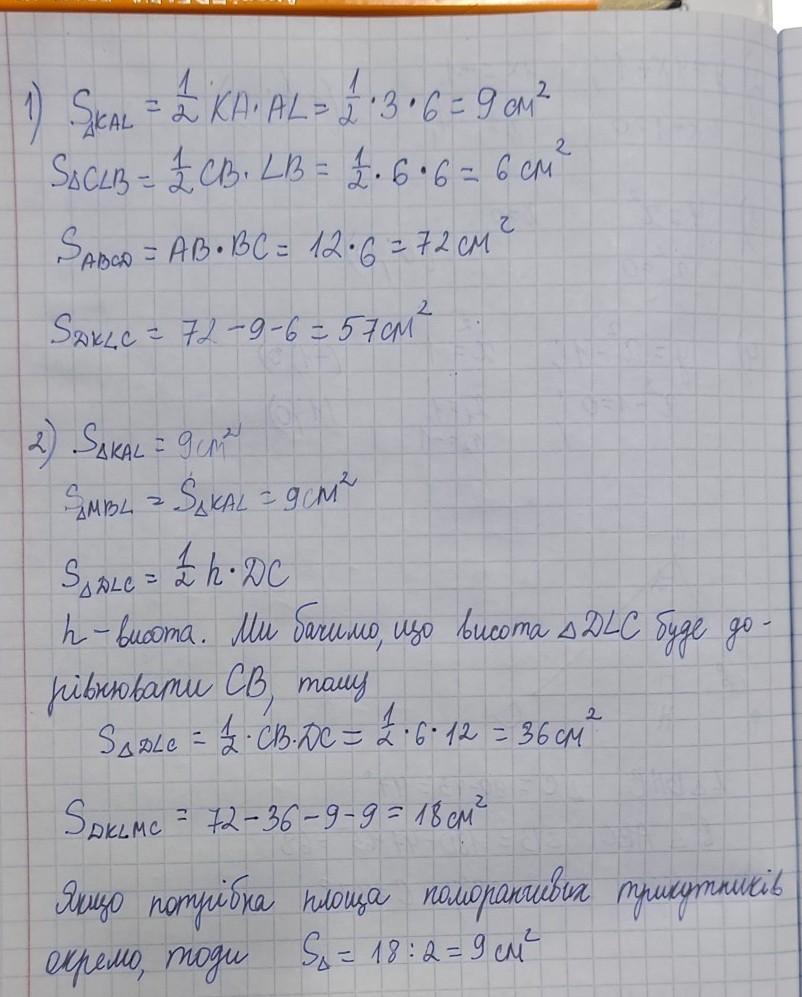 1) S△KAL = 1/2 KA · AL = 1/2 · 3 · 6 = 9 см²
S△CLB = 1/2 CB · LB = 1/2 · 6 · 6 = 6 см²
SABCD = AB · BC = 12 · 6 = 72 см²
SDKLC = 72 - 9 - 6 = 57 см²
2) S△KAL = 9 см²
S△MBL = S△KAL = 9 см²
S△DLC = 1/2 h · DC
h - висота. Ми бачимо, що висота △DLC буде до-
рівнювати CB, тому
S△DLC = 1/2 · CB · DC = 1/2 · 6 · 12 = 36 см²
SDKLMC = 72 - 36 - 9 - 9 = 18 см²
Якщо потрібна площа поморанчевих трикутників
окремо, тоди S△ = 18 : 2 = 9 см²